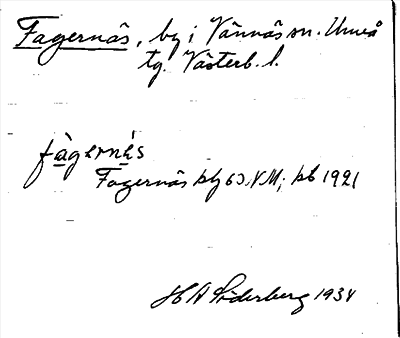 Fagernäs, by i Vännäs sn. Umeå
tg. Västerb. l.
fàgernés
Fagernäs bl 63 NM; kb 1921
HA Söderberg 1934